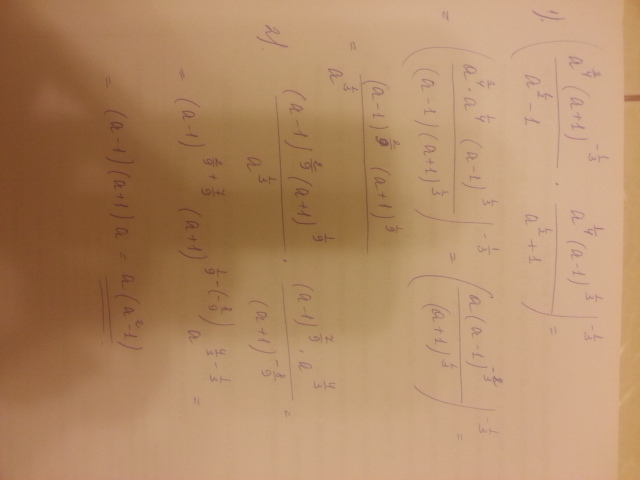 1). (a^{3/4} (a+1)^{-1/3} / (a^{1/2} - 1) · a^{1/4} (a-1)^{1/3} / (a^{1/2} + 1))^{-1/3} =
= (a^{3/4} · a^{1/4} (a-1)^{1/3} / ((a-1) (a+1)^{1/3}))^{-1/3} = (a (a-1)^{-2/3} / (a+1)^{1/3})^{-1/3} =
= (a-1)^{2/9} (a+1)^{1/9} / a^{1/3}
2). (a-1)^{2/9} (a+1)^{1/9} / a^{1/3} · (a-1)^{7/9} · a^{4/3} / (a+1)^{-8/9} =
= (a-1)^{2/9 + 7/9} (a+1)^{1/9 - (-8/9)} a^{4/3 - 1/3} =
= (a-1) (a+1) a = a (a² - 1)